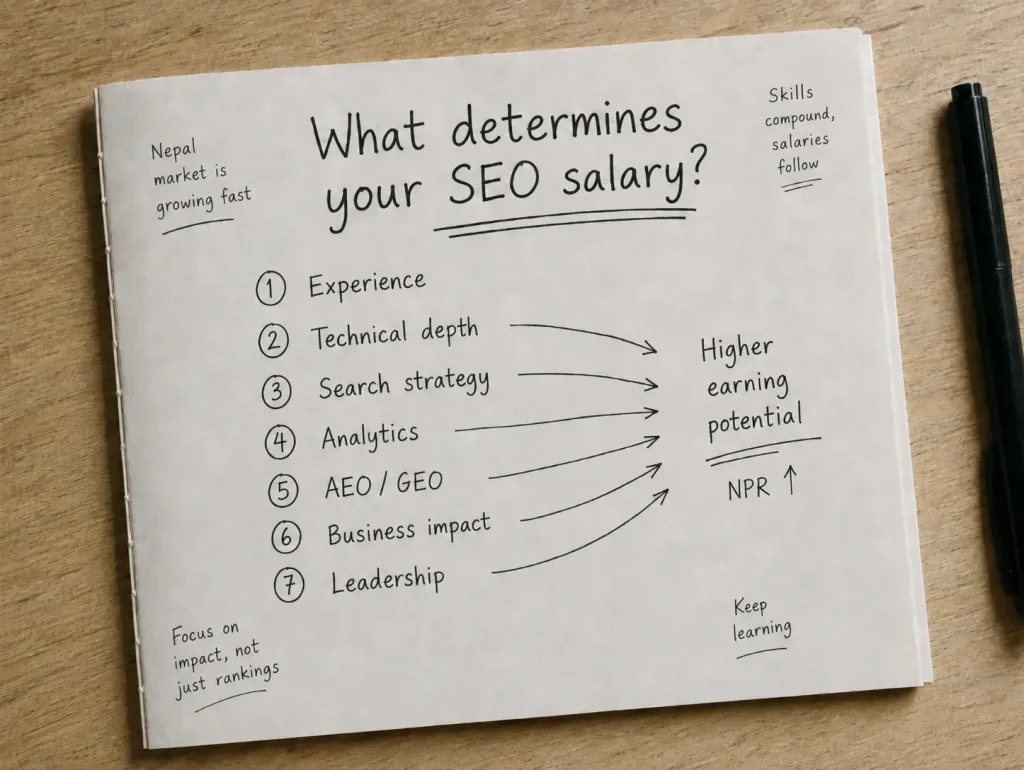 What determines
your SEO salary?
Nepal
market is
growing fast
Skills
compound,
salaries
follow
① Experience
② Technical depth
③ Search strategy
④ Analytics
⑤ AEO / GEO
⑥ Business impact
⑦ Leadership
Higher
earning
potential
NPR ↑
Focus on
impact, not
just rankings
Keep
learning